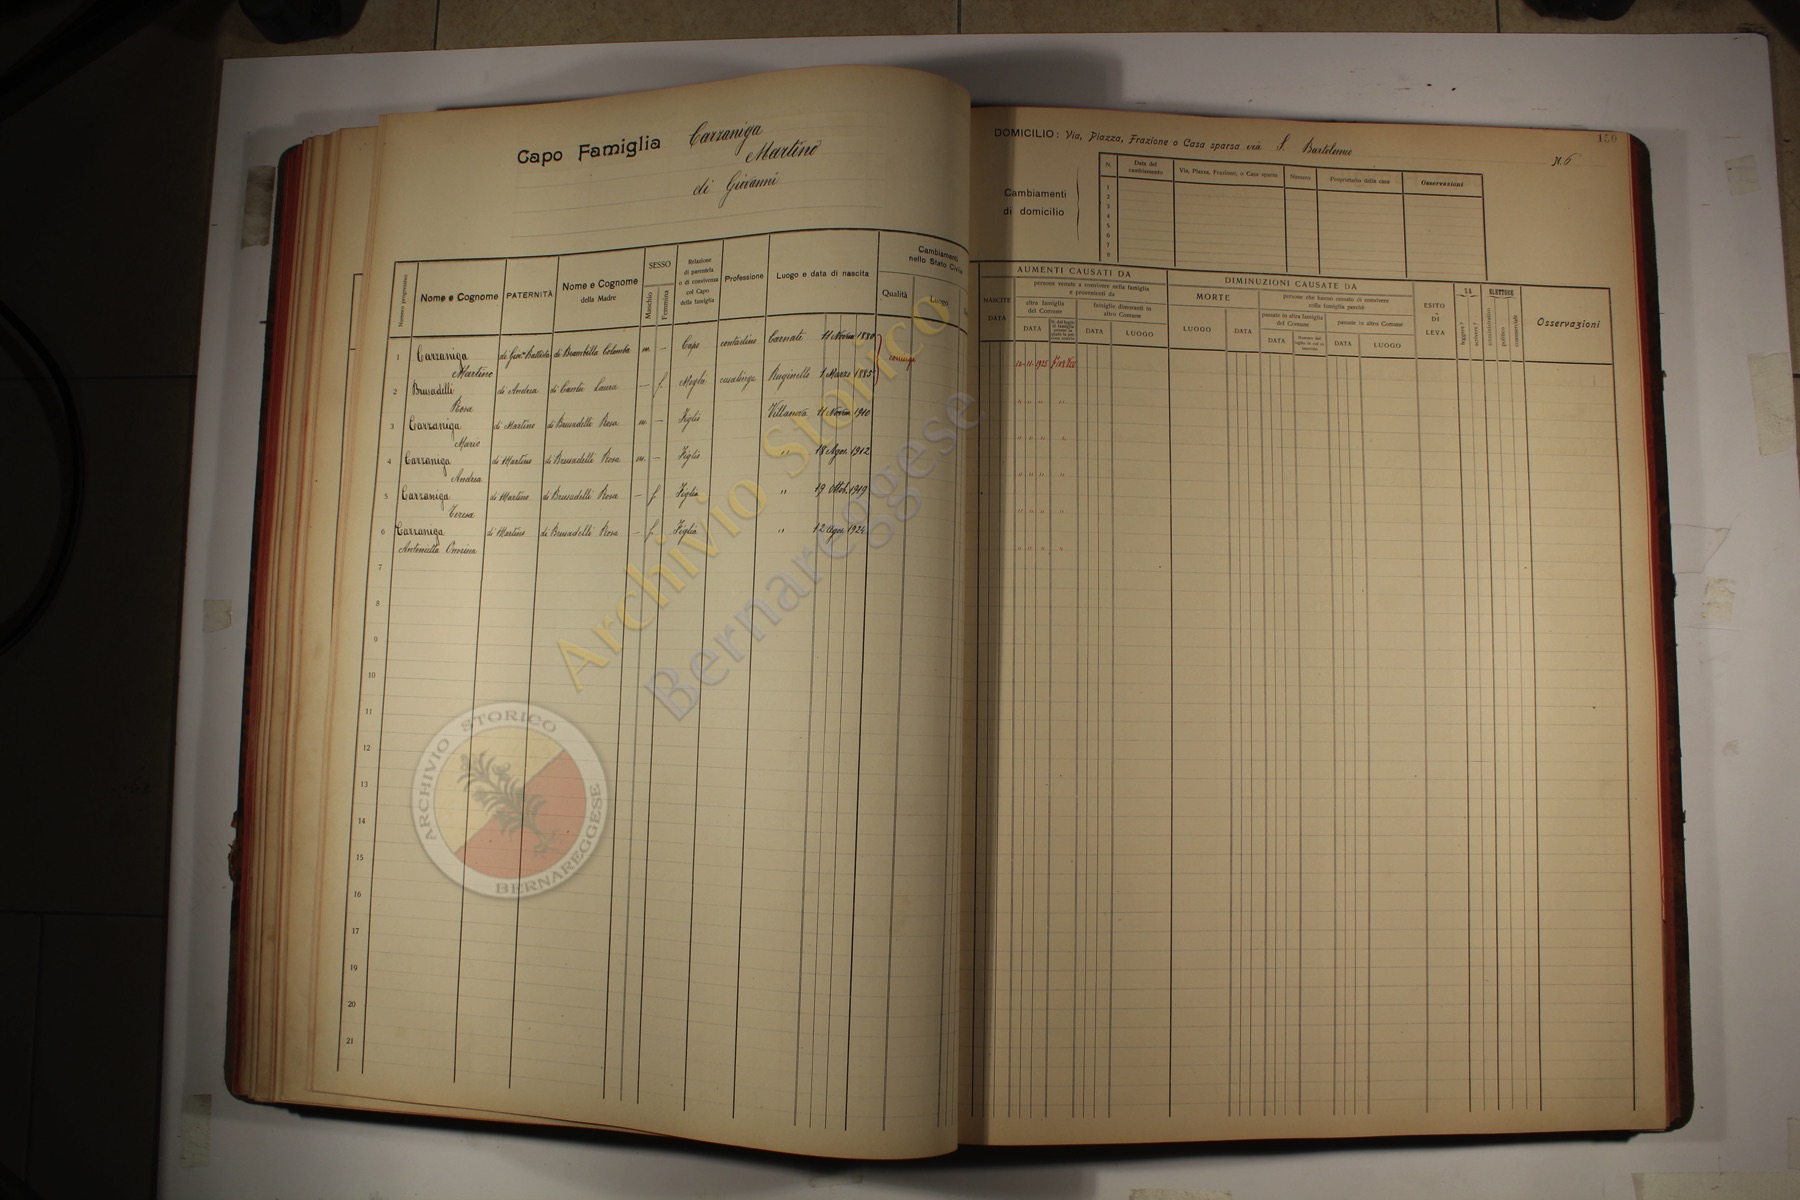 Capo Famiglia Carzaniga
Martino
di Giovanni
DOMICILIO: Via, Piazza, Frazione o Casa sparsa via S. Bartolomeo N. 6
150
Cambiamenti
di domicilio
N. Data del cambiamento Via, Piazza, Frazione, o Casa sparsa Numero Proprietario della casa Osservazioni
1
2
3
4
5
6
7
8
Numero progressivo Nome e Cognome PATERNITÀ Nome e Cognome della Madre SESSO Maschio Femmina Relazione di parentela o di convivenza col Capo della famiglia Professione Luogo e data di nascita Cambiamenti nello Stato Civile Qualità Luogo
NASCITE DATA AUMENTI CAUSATI DA persone venute a convivere nella famiglia e provenienti da altra famiglia del Comune DATA famiglie dimoranti in altro Comune DATA LUOGO
DIMINUZIONI CAUSATE DA MORTE LUOGO DATA persone che hanno cessato di convivere colla famiglia perchè passate in altra famiglia del Comune DATA passate in altro Comune DATA LUOGO
ESITO DI LEVA SA leggere? scrivere? ELETTORE amministrativo politico commerciale Osservazioni
1 Carzaniga Martino di Giov. Battista di Brambilla Colomba m. — Capo contadino Carnate 11 Novem 1880 coniugi 11-11-1925
2 Brusadelli Rosa di Andrea di Cantù Laura — f. Moglie casalinga Ruginello 1 Marzo 1885 " " " "
3 Carzaniga Mario di Martino di Brusadelli Rosa m. — Figlio Villanova 11 Novem 1910 " " " "
4 Carzaniga Andrea di Martino di Brusadelli Rosa m. — Figlio " 18 Agos. 1912 " " " "
5 Carzaniga Teresa di Martino di Brusadelli Rosa — f. Figlia " 19 Ottob. 1919 " " " "
6 Carzaniga Antonietta Onorina di Martino di Brusadelli Rosa — f. Figlia " 12 Agos. 1924 " " " "
7
8
9
10
11
12
13
14
15
16
17
19
20
21
Archivio Storico
Bernareggese
ARCHIVIO STORICO
BERNAREGGESE